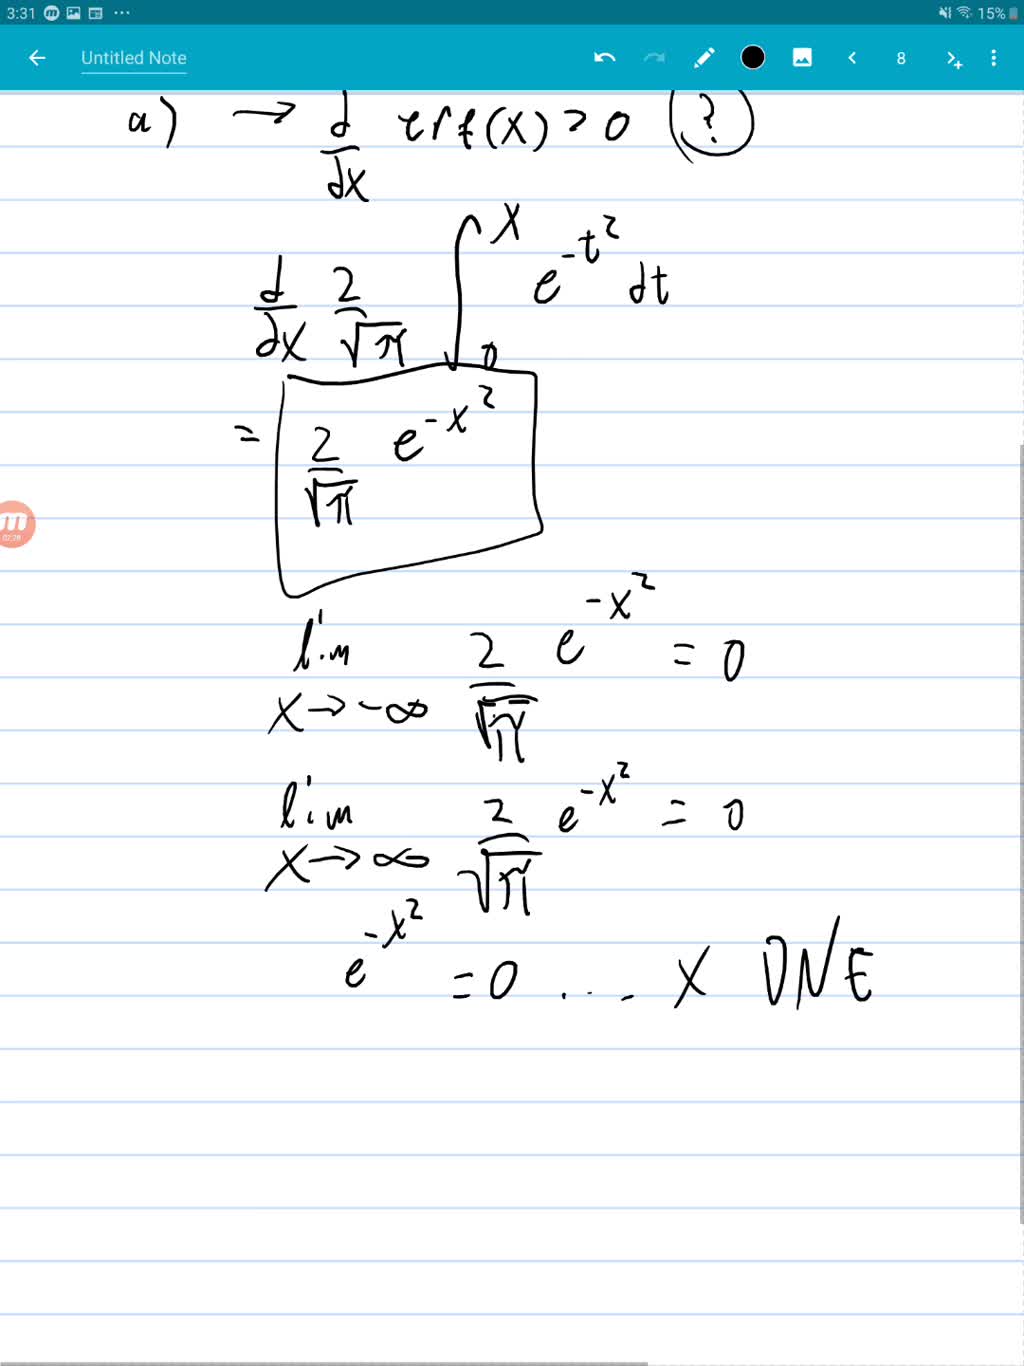 3:31 15%
Untitled Note 8
a) → d/dx erf(x) > 0 (?)
d/dx 2/√π ∫₀ˣ e^(-t²) dt
= 2/√π e^(-x²)
02:28
lim x→-∞ 2/√π e^(-x²) = 0
lim x→∞ 2/√π e^(-x²) = 0
e^(-x²) = 0 .... X DNE